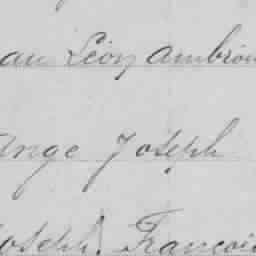 au Léon Ambroi
Ange Joseph
Joseph François